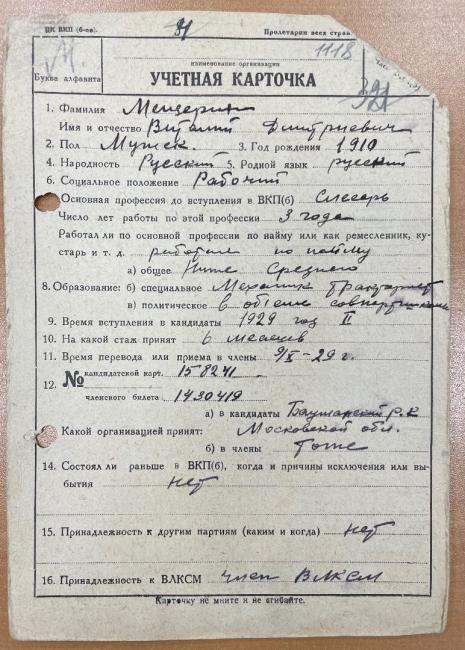 ЦК ВКП (б-ов).
Пролетарии всех стран
1118
Буква алфавита
наименование организации
УЧЕТНАЯ КАРТОЧКА
391
1. Фамилия Мещерин
Имя и отчество Виталий Дмитриевич
2. Пол Мужск. 3. Год рождения 1910
4. Народность Русский 5. Родной язык русский
6. Социальное положение Рабочий
Основная профессия до вступления в ВКП(б) Слесарь
Число лет работы по этой профессии 3 года
Работал ли по основной профессии по найму или как ремесленник, ку-
старь и т. д. работал по найму
а) общее Ниже Среднего
8. Образование: б) специальное Механик
в) политическое в объеме совпартшколы
9. Время вступления в кандидаты 1929 год II
10. На какой стаж принят 6 месяцев
11. Время перевода или приема в члены 9/X-29 г.
12. № кандидатской карт. 158241
членского билета 1430419
а) в кандидаты Р.К
Какой организацией принят: Московской обл.
б) в члены Тоже
14. Состоял ли раньше в ВКП(б), когда и причины исключения или вы-
бытия нет
15. Принадлежность к другим партиям (каким и когда) нет
16. Принадлежность к ВЛКСМ член ВЛКСМ
Карточку не мните и не сгибайте.